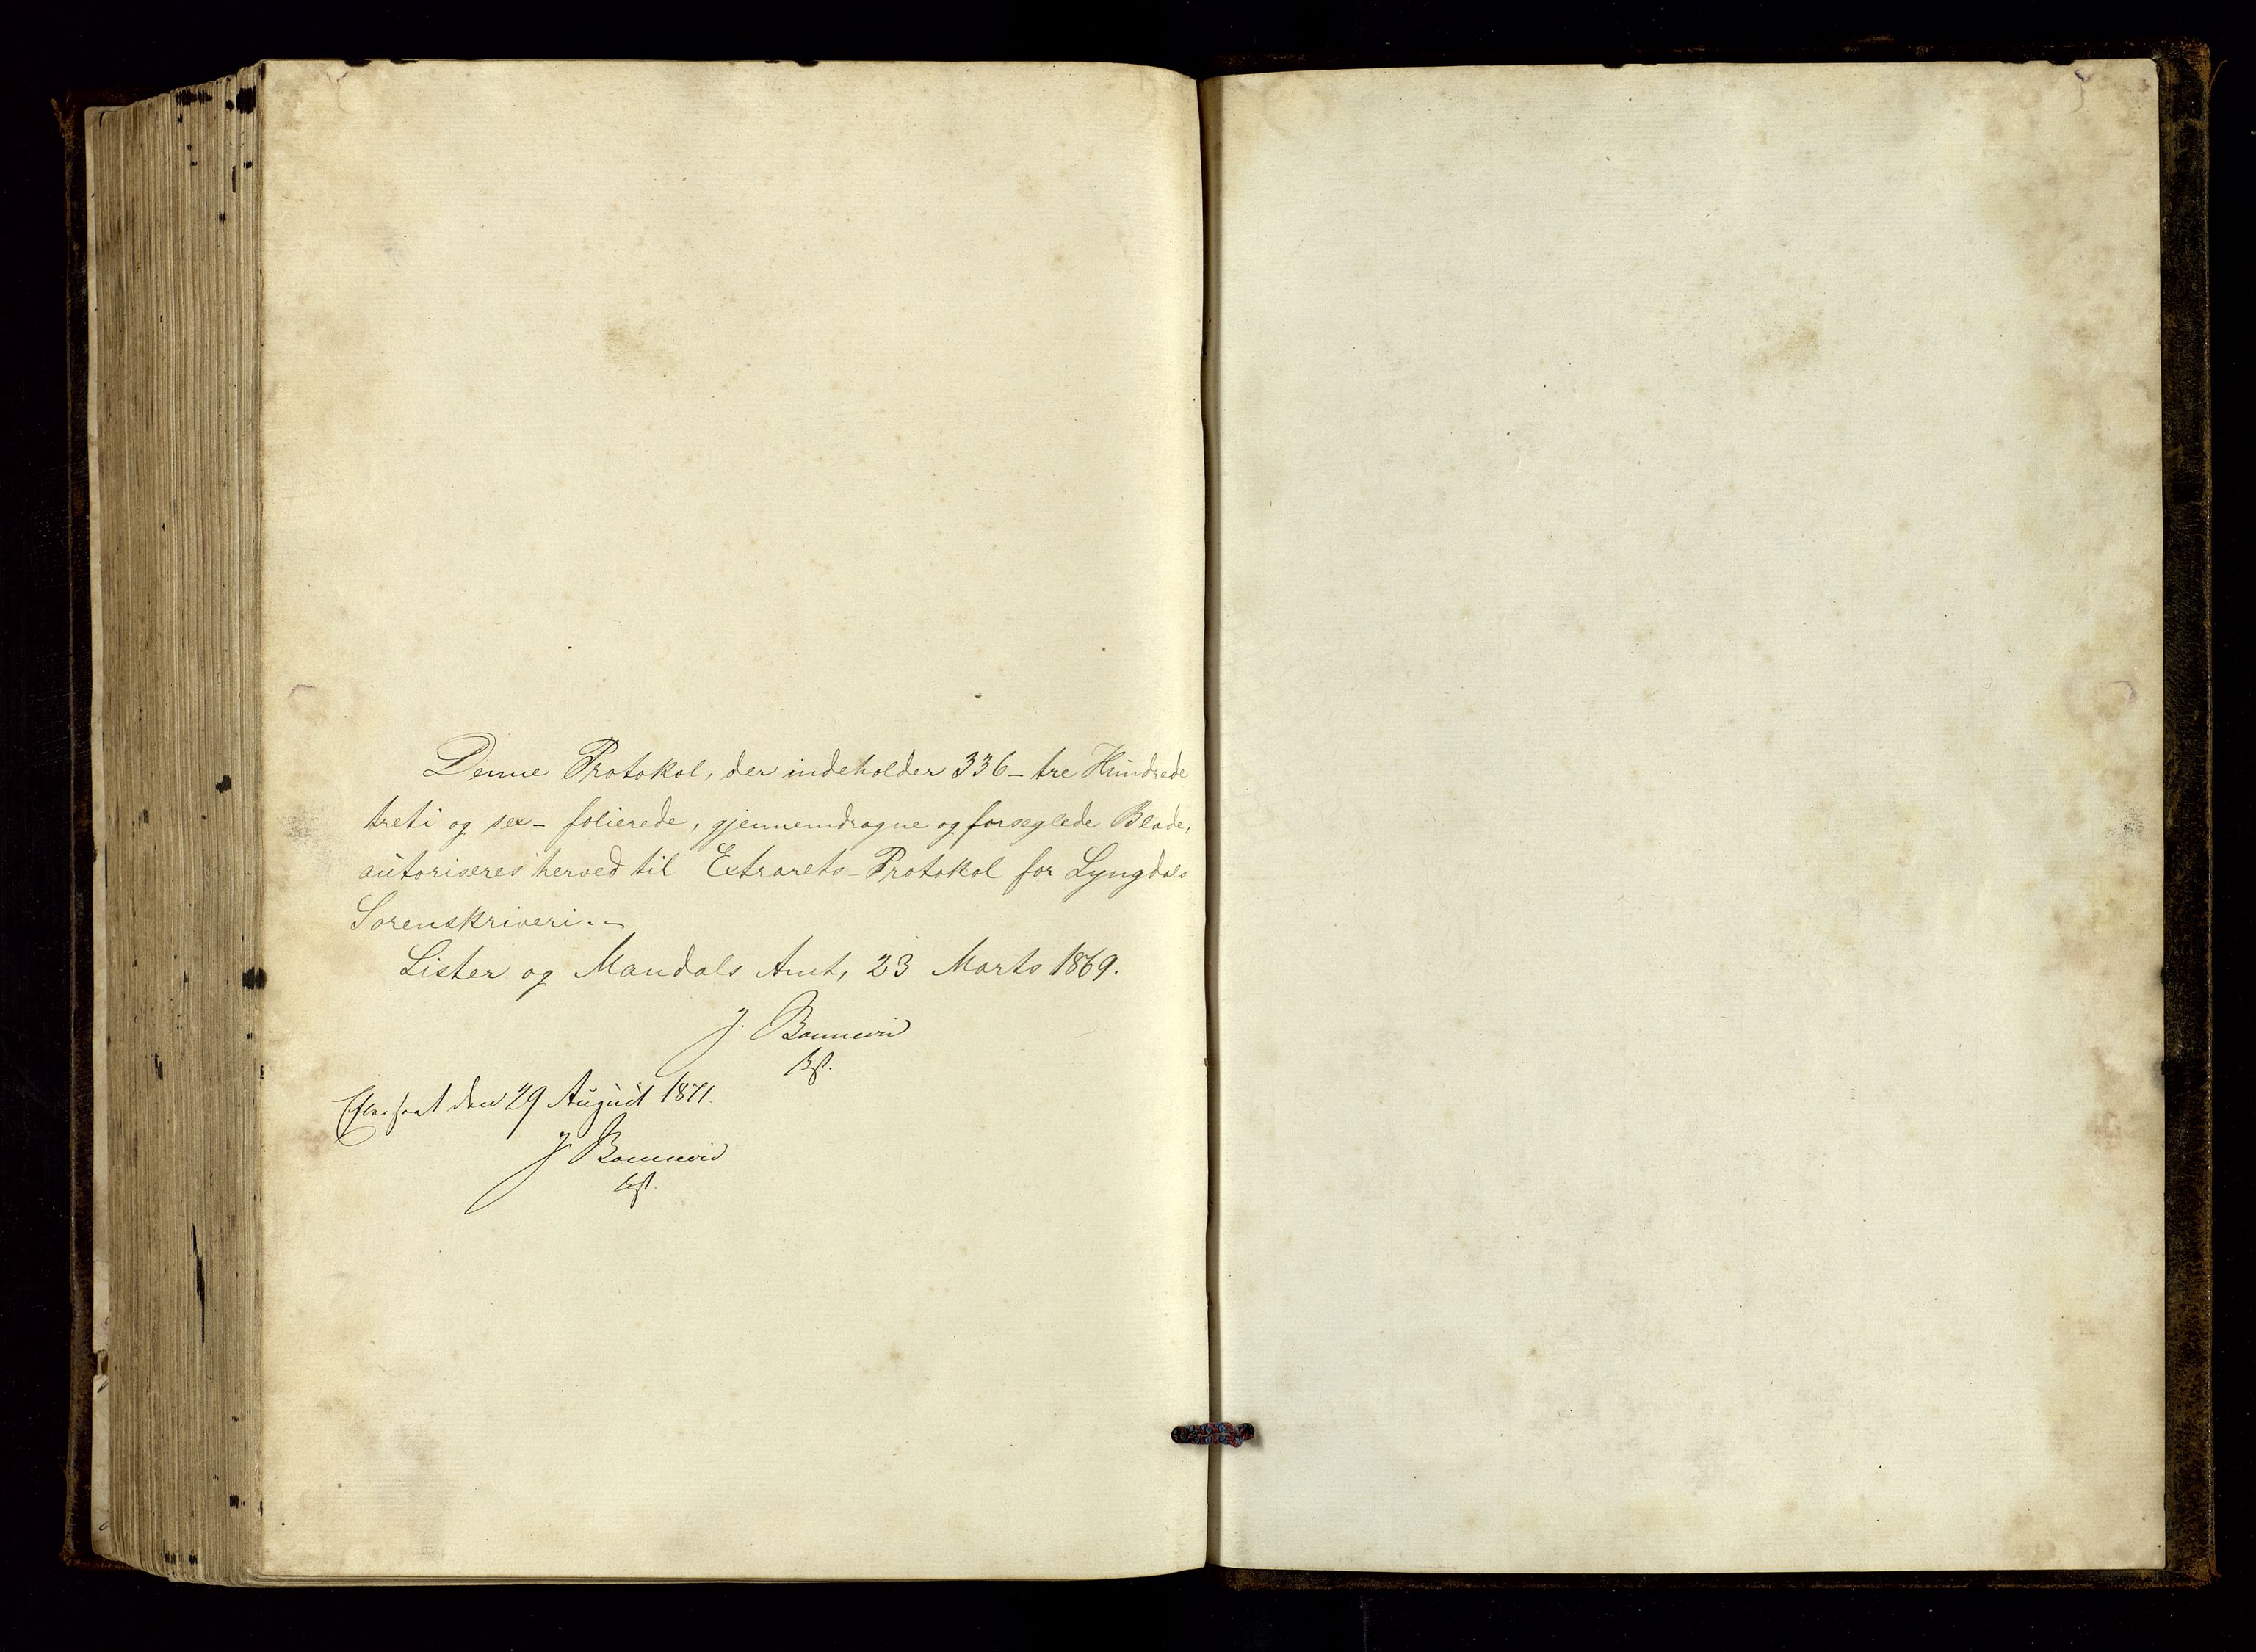 Denne Protokol, der indeholder 336 – tre Hundrede
treti og sex – folierede, gjennemdragne og forseglede Blade,
autoriseres herved til Extrarets-Protokol for Lyngdals
Sorenskriveri. –
Lister og Mandals Amt, 23 Marts 1869.
J. Bonnevie
kst.
Efterseet den 29 August 1871.
J Bonnevie
kst.